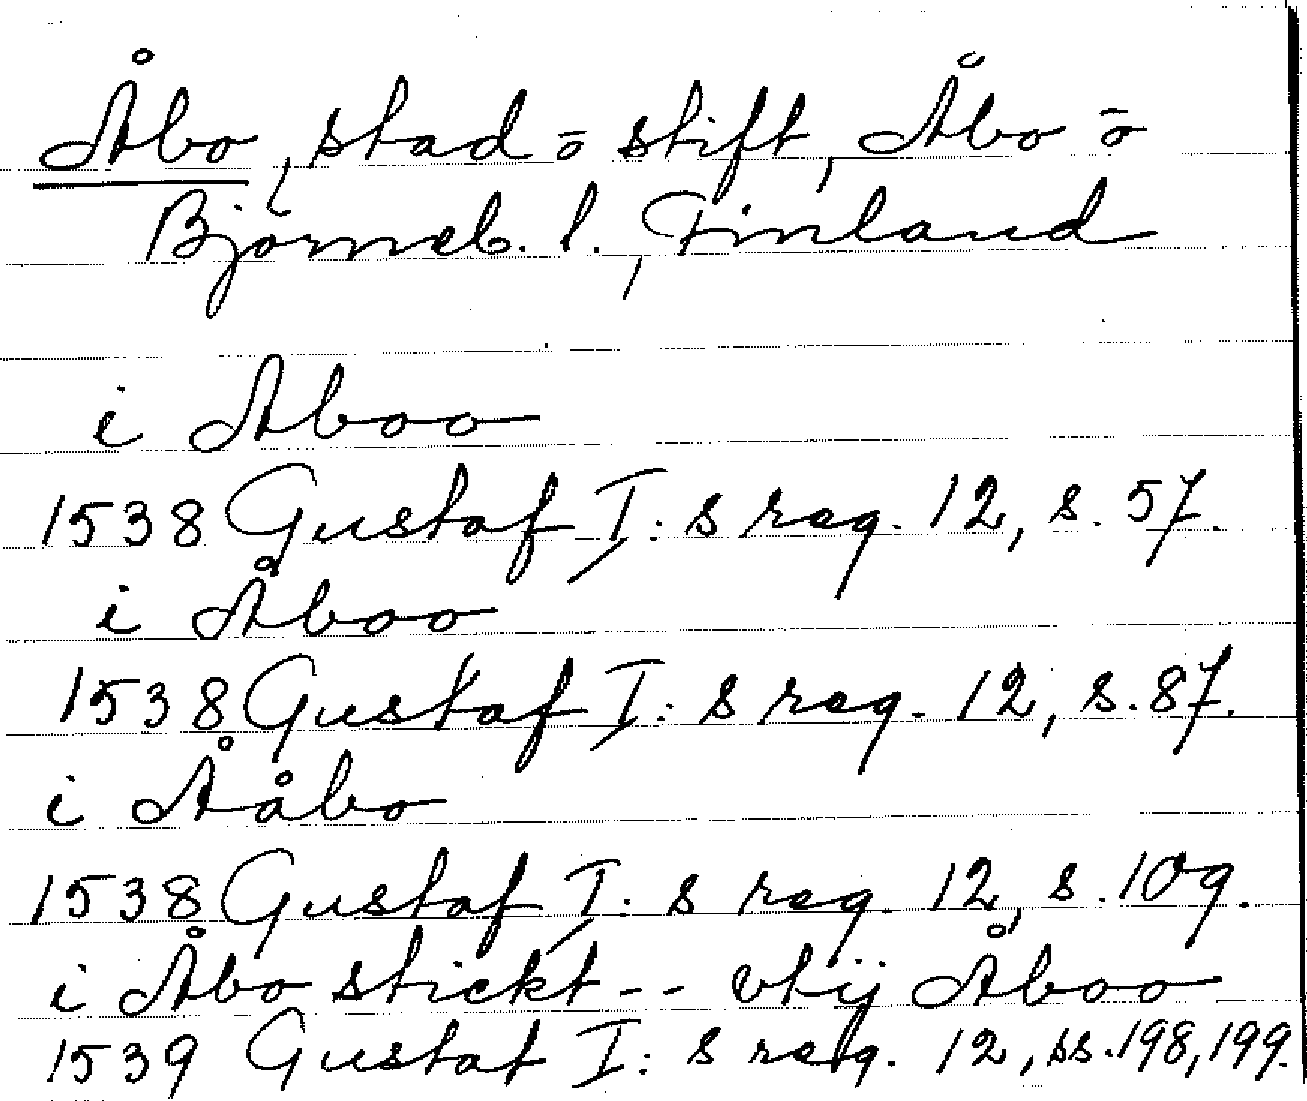 Åbo, stad o stift, Åbo o
Björneb. l., Finland
i Aboo
1538 Gustaf I: s reg. 12, s. 57.
i Åboo
1538 Gustaf I: s reg. 12, s. 87.
i Ååbo
1538 Gustaf I: s reg. 12, s. 109.
i Åbo stickt -- vtij Åboo
1539 Gustaf I: s reg. 12, ss. 198, 199.